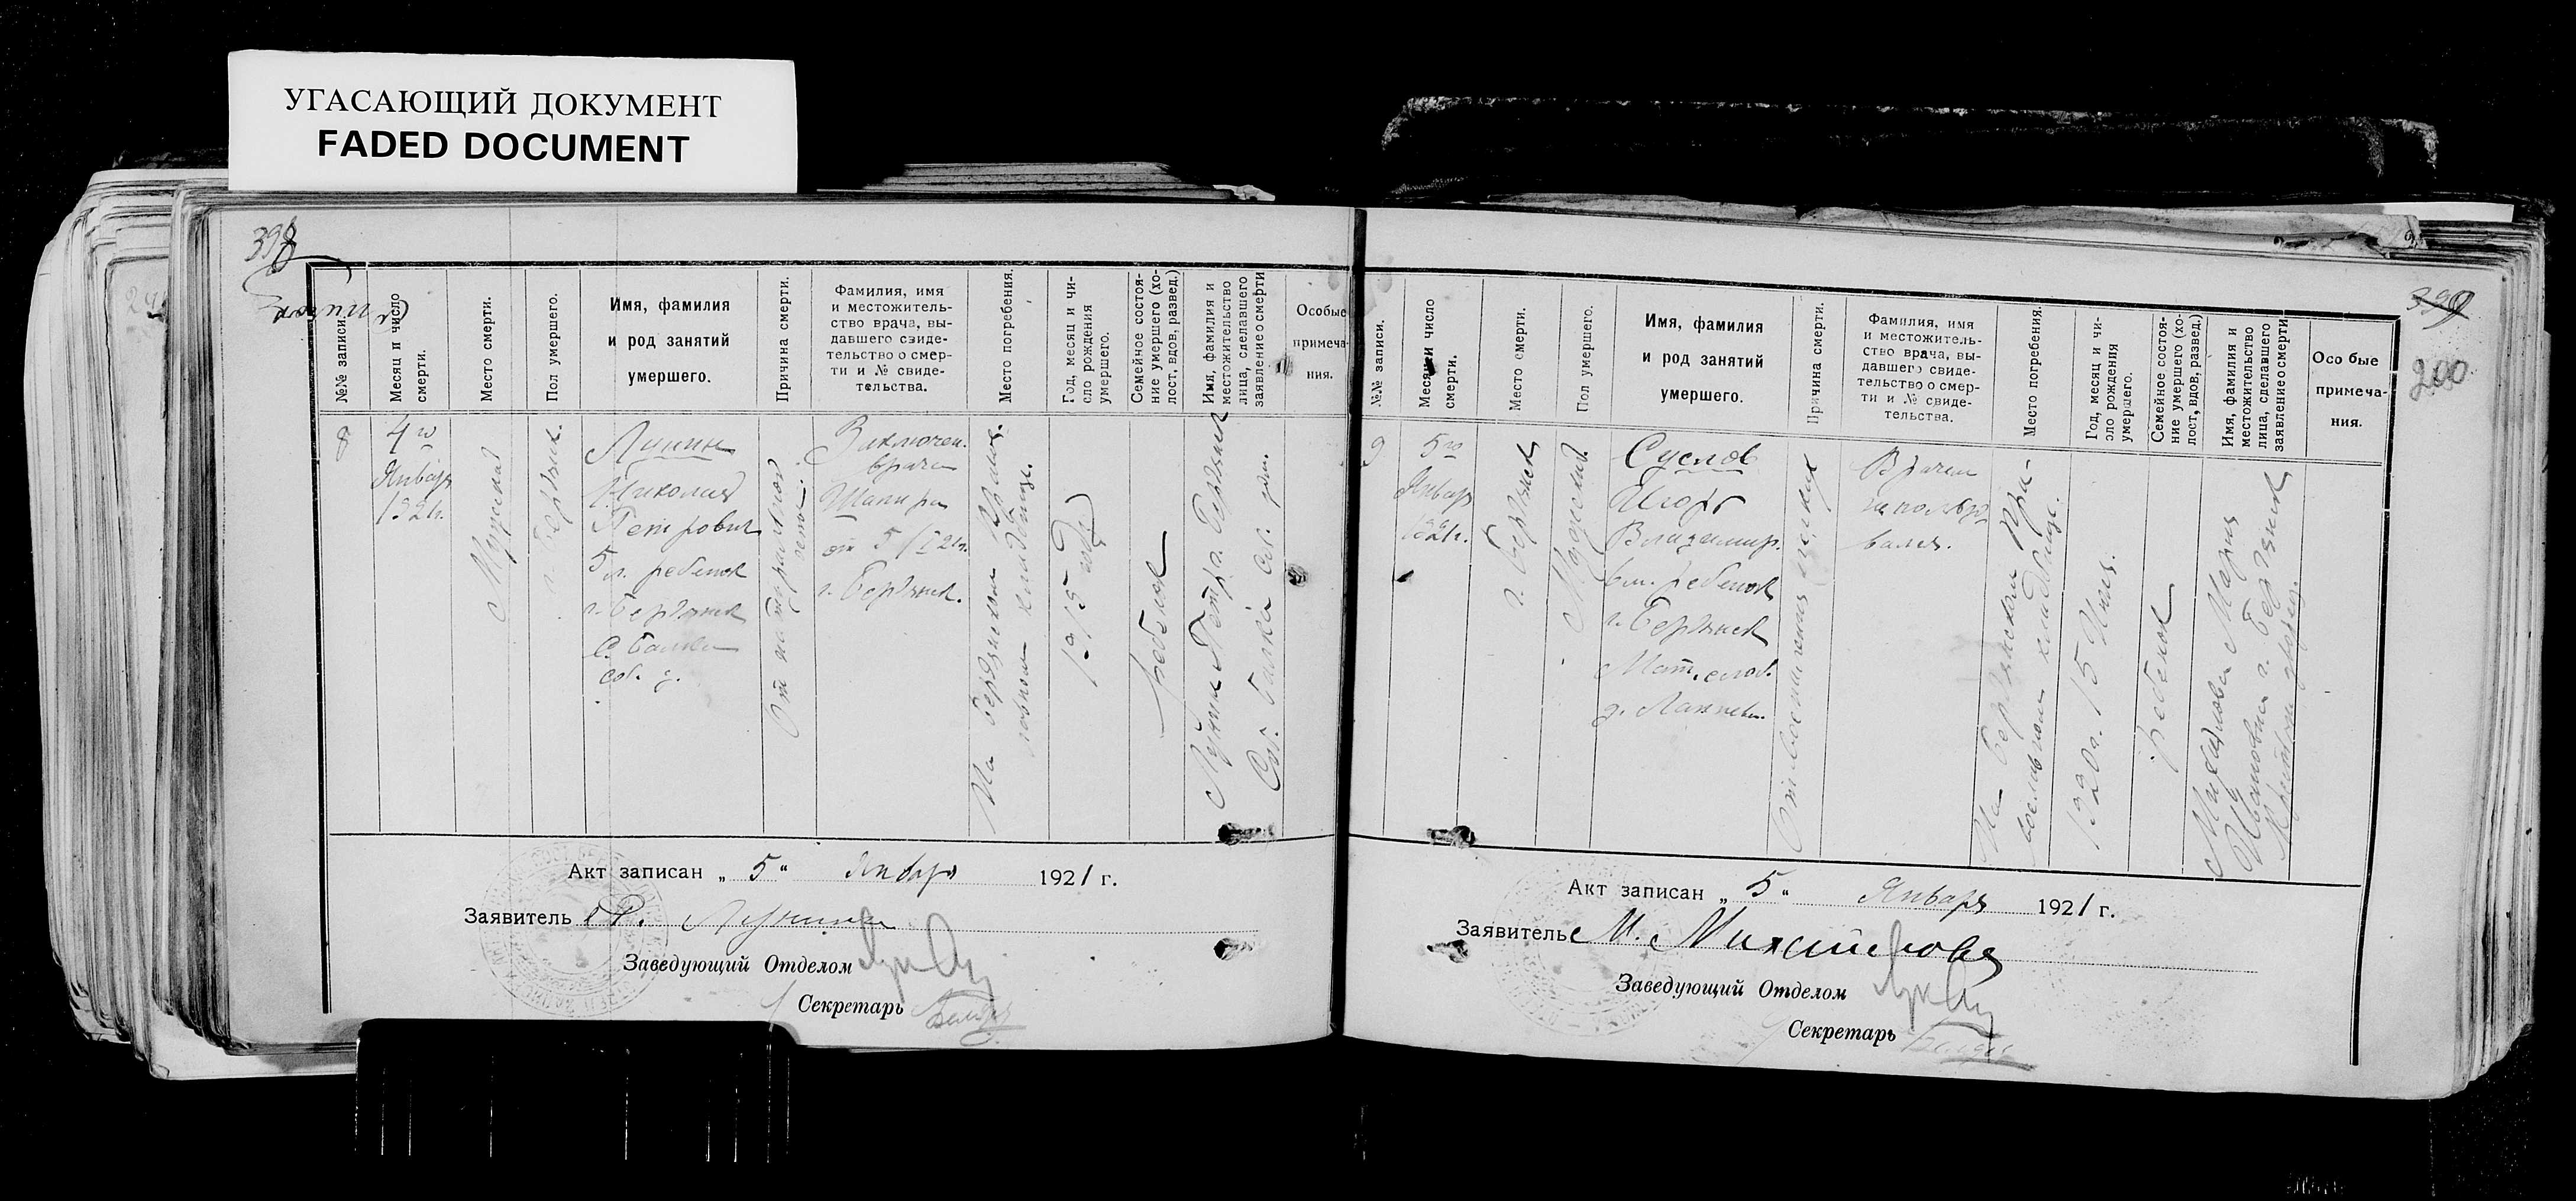 УГАСАЮЩИЙ ДОКУМЕНТ
FADED DOCUMENT
398
№№ записи.
Месяц и число
смерти.
Место смерти.
Пол умершего.
Имя, фамилия
и род занятий
умершего.
Причина смерти.
Фамилия, имя
и местожитель-
ство врача, вы-
давшего свиде-
тельство о смер-
ти и № свиде-
тельства.
Место погребения.
Год, месяц и чи-
сло рождения
умершего.
Семейное состоя-
ние умершего (хо-
лост, вдов, развед.)
Имя, фамилия и
местожительство
лица, сделавшего
заявление о смерти
Особые
примеча-
ния.
8
4го
Январь
1921г.
Мужской
г. Бердянск.
Лунин
Николай
Петрович
5 л. ребенок
г. Бердянск
с. Балка
соб. д.
От
Заключен.
врача
Шапиро
от 5/I 21г.
г. Бердянск.
На Бердянском
кладбище.
1915
ребенок
Лунин Петр г. Бердянск
Соб. Балка соб. дом.
Акт записан „ 5 “ Январь 1921 г.
Заявитель П. Лунин
Заведующий Отделом
Секретарь
399
200
№№ записи.
Месяц и число
смерти.
Место смерти.
Пол умершего.
Имя, фамилия
и род занятий
умершего.
Причина смерти.
Фамилия, имя
и местожитель-
ство врача, вы-
давшего свиде-
тельство о смер-
ти и № свиде-
тельства.
Место погребения.
Год, месяц и чи-
сло рождения
умершего.
Семейное состоя-
ние умершего (хо-
лост, вдов, развед.)
Имя, фамилия и
местожительство
лица, сделавшего
заявление о смерти
Особые
примеча-
ния.
9
5го
Январь
1921г.
г. Бердянск
Мужской
Суслов
Игорь
Владимир.
6 м. ребенок
г. Бердянск
д. Лаппевы.
От воспаления легких
Врачем
не пользо
вался.
На Бердянском
кладбище.
1920г. 15 Июл.
ребенок
Михайлова Мария
Ивановна г. Бердянск
Акт записан „ 5 “ Январь 1921 г.
Заявитель М. Михайлова
Заведующий Отделом
Секретарь